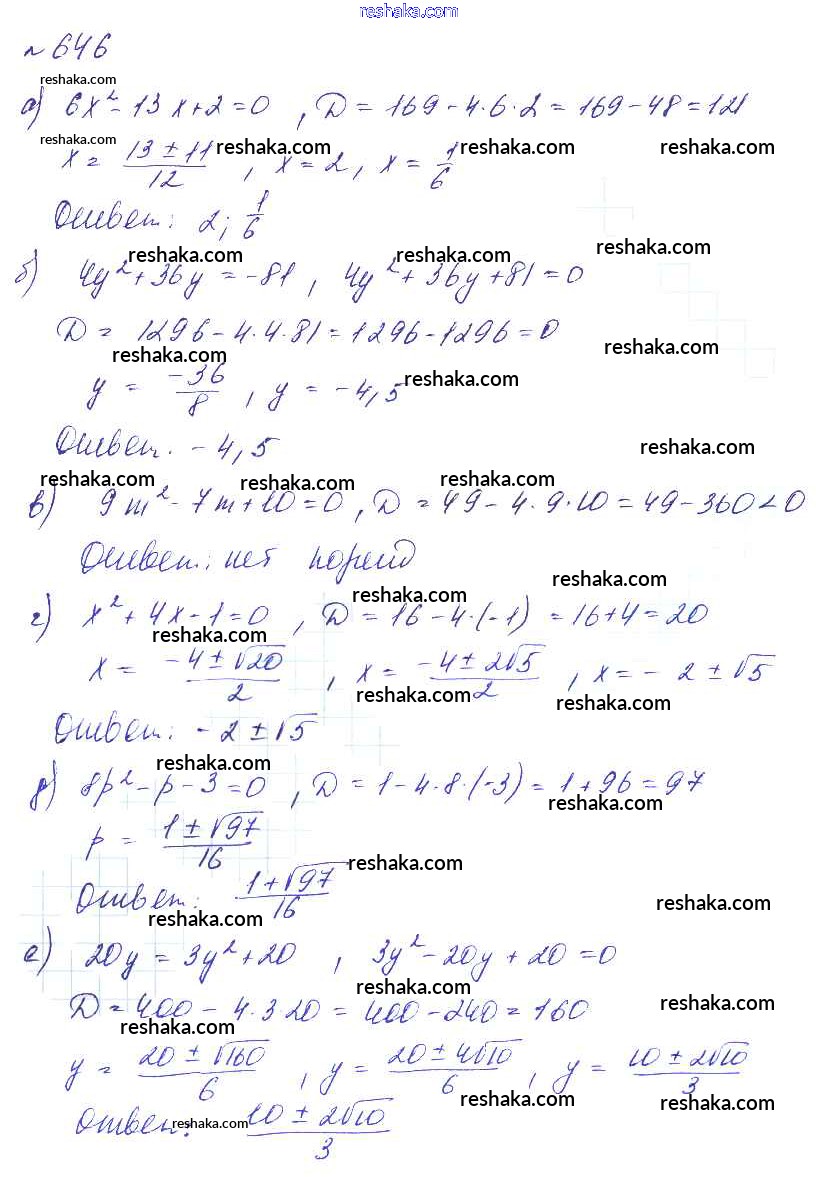 reshaka.com
№ 646
reshaka.com
а) 6x² - 13x + 2 = 0 , D = 169 - 4·6·2 = 169 - 48 = 121
reshaka.com
x = (13 ± 11)/12 , x = 2 , x = 1/6
reshaka.com reshaka.com reshaka.com
Ответ: 2; 1/6
reshaka.com reshaka.com reshaka.com
б) 4y² + 36y = -81 , 4y² + 36y + 81 = 0
D = 1296 - 4·4·81 = 1296 - 1296 = 0
reshaka.com reshaka.com
y = -36/8 , y = -4,5
reshaka.com
Ответ. -4,5
reshaka.com
reshaka.com reshaka.com reshaka.com
в) 9m² - 7m + 10 = 0 , D = 49 - 4·9·10 = 49 - 360 < 0
Ответ: нет корней
reshaka.com
г) x² + 4x - 1 = 0 , D = 16 - 4·(-1) = 16 + 4 = 20
reshaka.com
x = (-4 ± √20)/2 , x = (-4 ± 2√5)/2 , x = -2 ± √5
reshaka.com reshaka.com
Ответ: -2 ± √5
reshaka.com
д) 8p² - p - 3 = 0 , D = 1 - 4·8·(-3) = 1 + 96 = 97
reshaka.com
p = (1 ± √97)/16
reshaka.com
Ответ: (1 + √97)/16
reshaka.com reshaka.com
е) 20y = 3y² + 20 , 3y² - 20y + 20 = 0
reshaka.com
D = 400 - 4·3 20 = 400 - 240 = 160
reshaka.com reshaka.com
y = (20 ± √160)/6 , y = (20 ± 4√10)/6 , y = (10 ± 2√10)/3
reshaka.com reshaka.com
Ответ: (10 ± 2√10)/3
reshaka.com